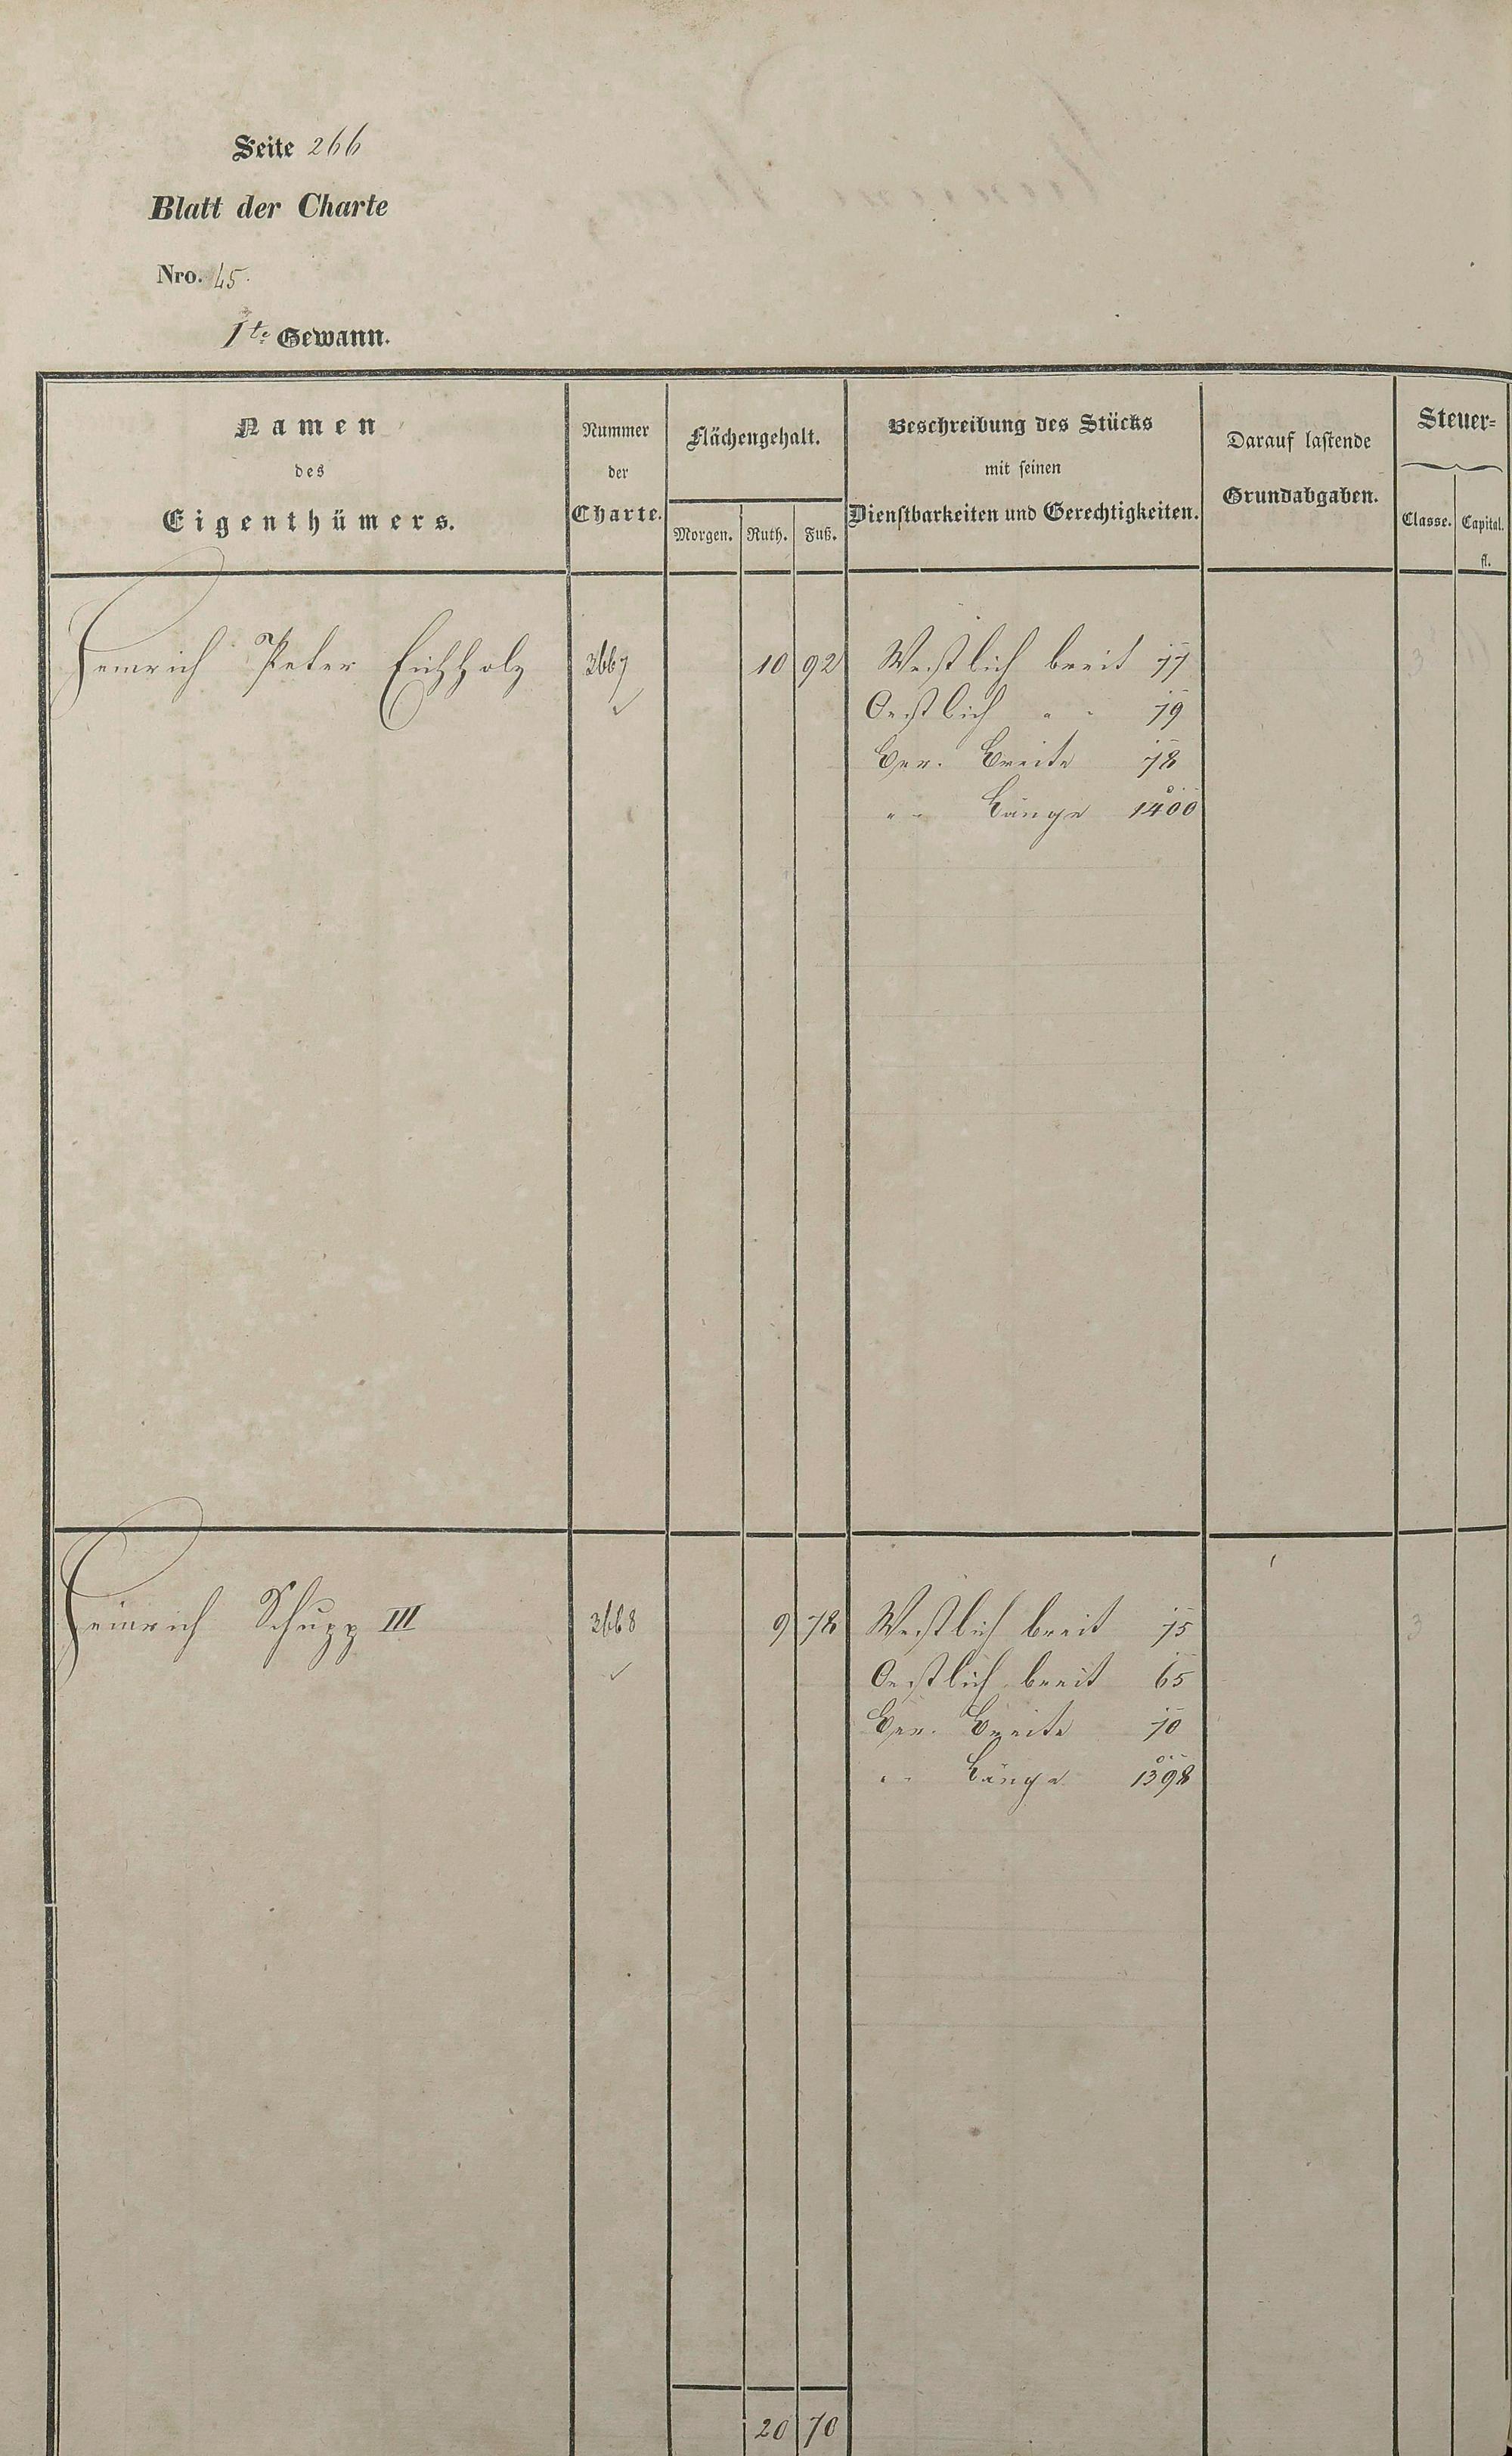 Seite 266
Blatt der Charte
Nro. 45.
1te Gewann.
Namen
des
Eigenthümers.
Nummer
der
Charte.
Flächengehalt.
Morgen. Ruth. Fuß.
Beschreibung des Stücks
mit seinen
Dienstbarkeiten und Gerechtigkeiten.
Darauf lastende
Grundabgaben.
Steuer=
Classe. Capital.
fl.
Heinrich Peter Eichholz 3667 10 92 Westlich breit 77 3
Oestlich " " 79
Ger. Breite 78
" " Länge 1400
Heinrich Schupp III 3668 9 78 Westlich breit 75 3
Oestlich breit 65
Ger. Breite 70
" " Länge 1398
20 70